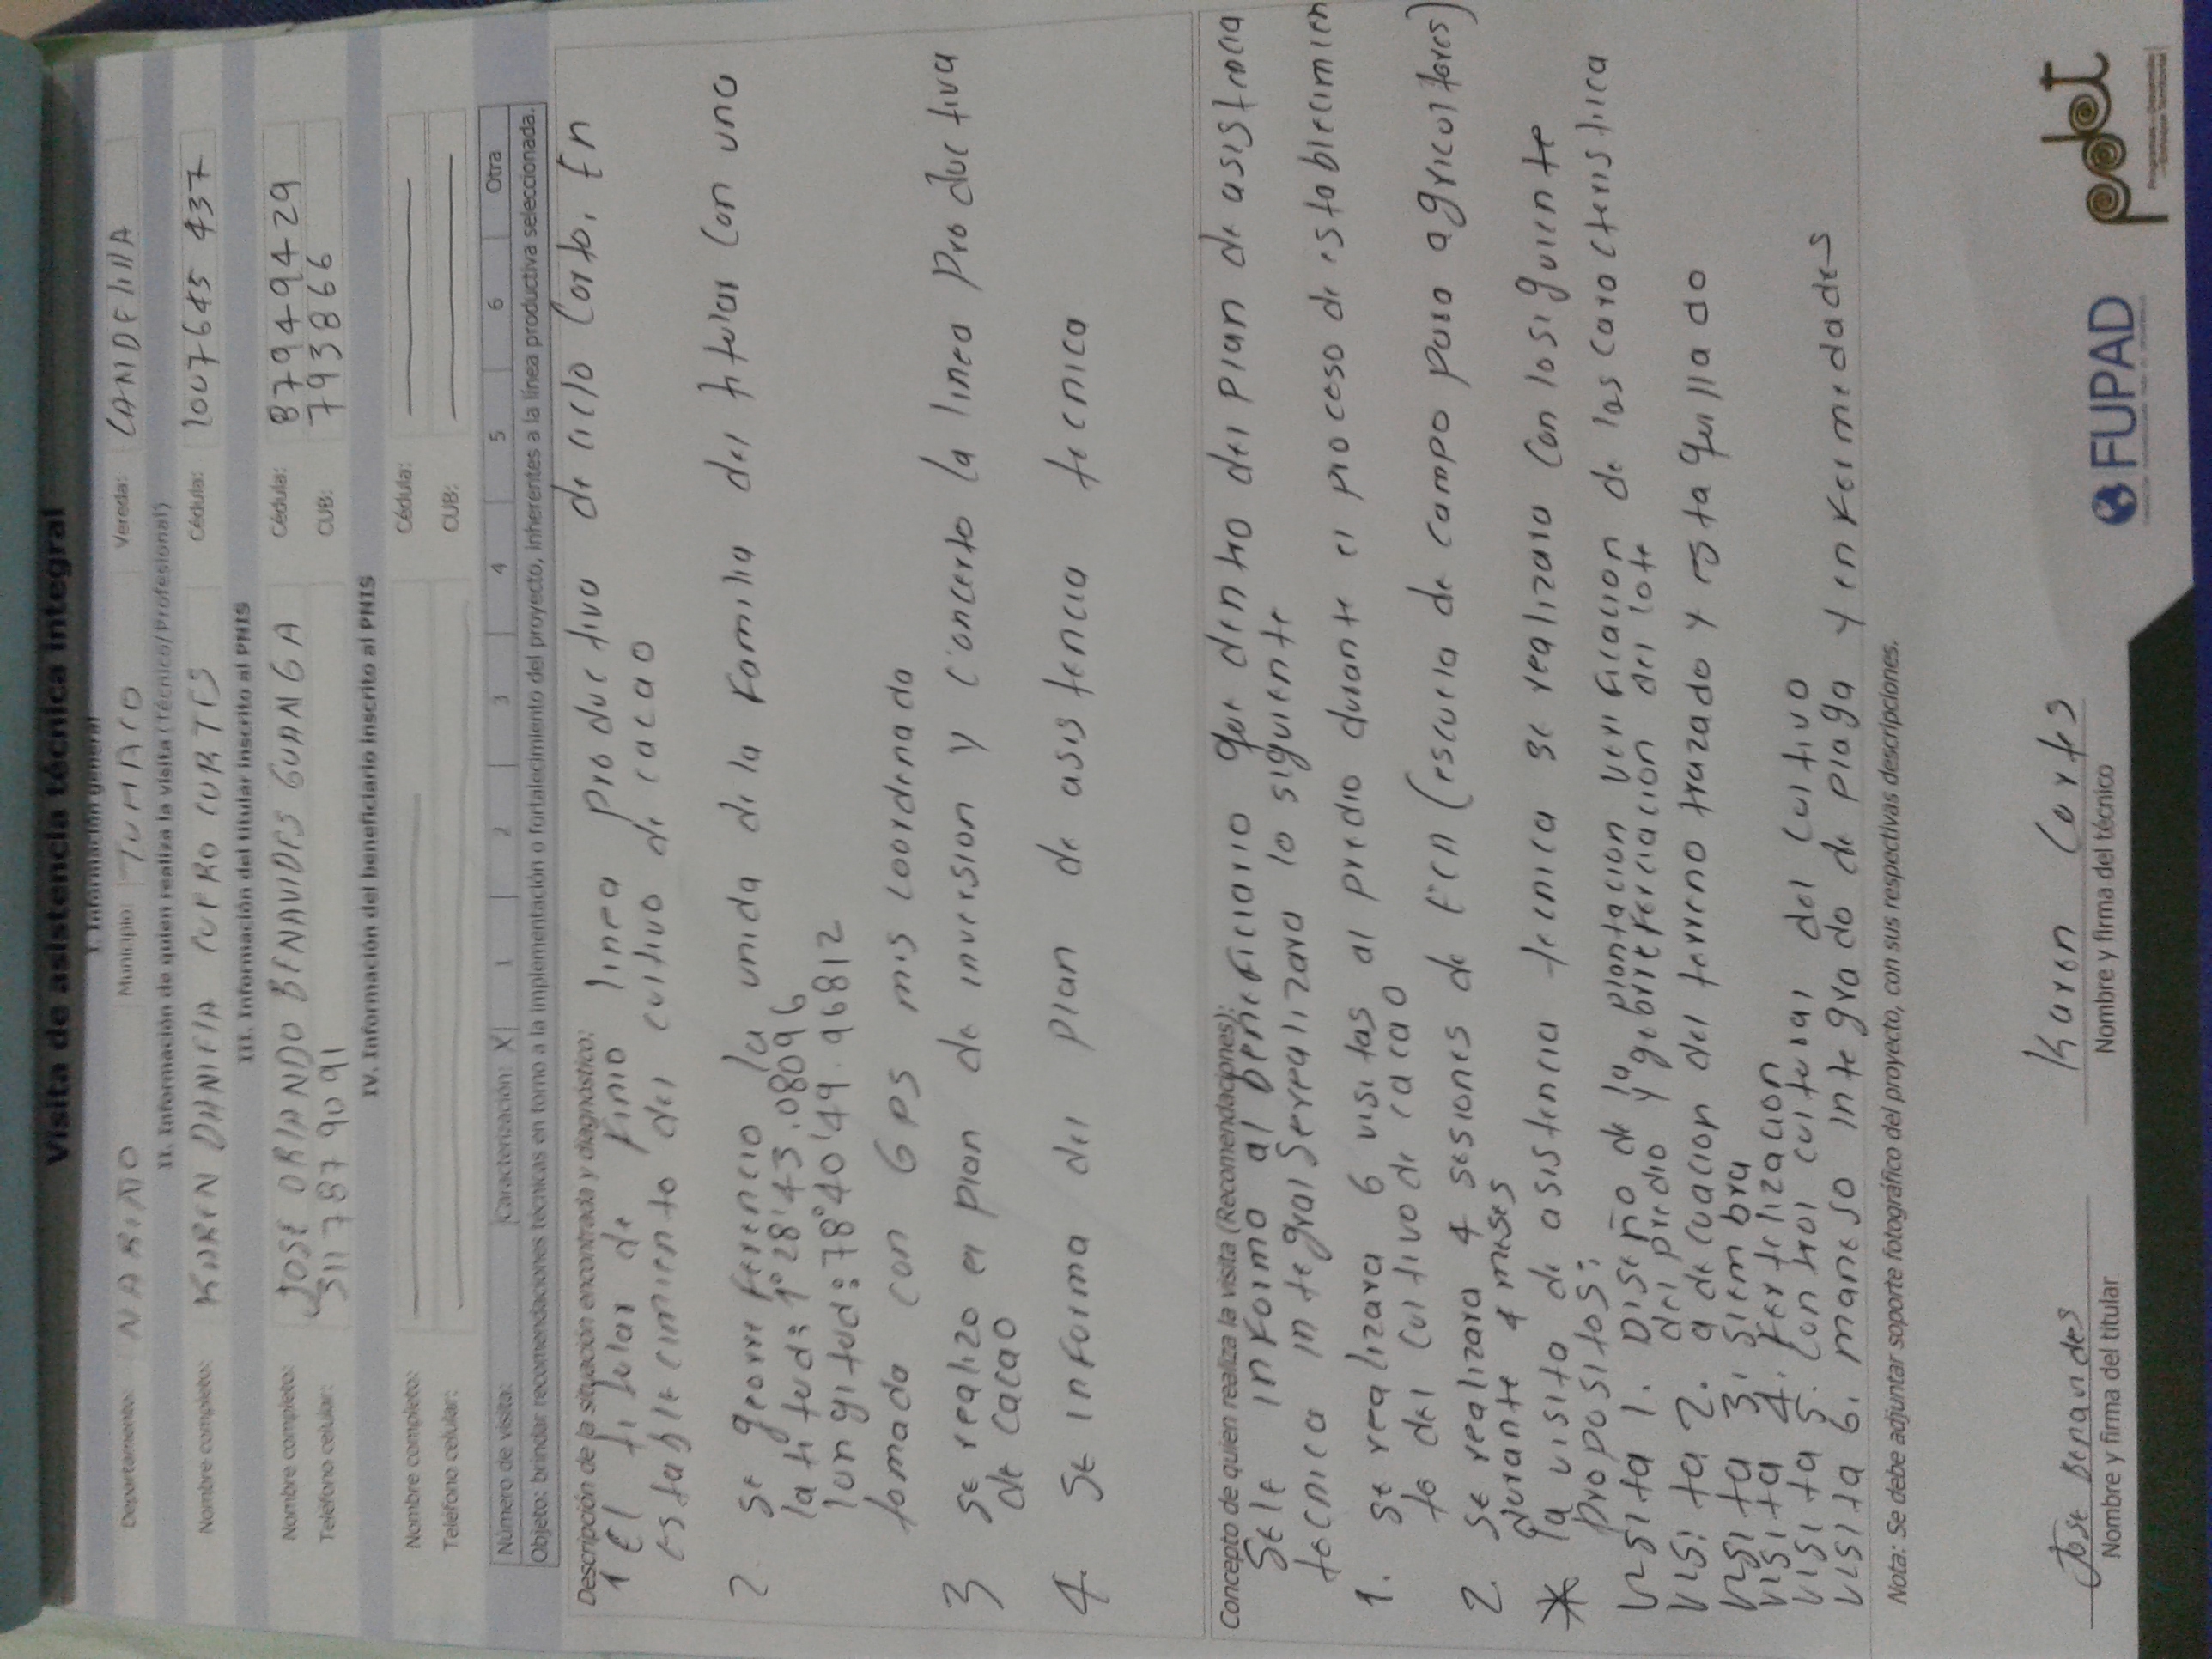 Visita de asistencia técnica integral
I. Información general
Departamento: NARIÑO Municipio: TUMACO Vereda: CANDELILLA
II. Información de quien realiza la visita (Técnico/Profesional)
Nombre completo: KAREN DANIELA CUERO CORTES Cédula: 1007645437
III. Información del titular inscrito al PNIS
Nombre completo: JOSE ORLANDO BENAVIDES GUANGA Cédula: 87949429
Teléfono celular: 3117879091 CUB: 793866
IV. Información del beneficiario inscrito al PNIS
Nombre completo: Cédula:
Teléfono celular: CUB:
Número de visita: Caracterización: X 1 2 3 4 5 6 Otra
Objeto: brindar recomendaciones técnicas en torno a la implementación o fortalecimiento del proyecto, inherentes a la línea productiva seleccionada.
Descripción de la situación encontrada y diagnóstico:
1 El titular definio linea productivo de ciclo corto, En
establecimiento del cultivo de cacao
2. se georreferencio la unida de la familia del titular con una
latitud: 1°28'43.08096
longitud: 78°40'49.96812
tomada con GPS mis coordenada
3 se realizo el plan de inversion y concerto la linea productiva
de cacao
4. se informa del plan de asistencia tecnica
Concepto de quien realiza la visita (Recomendaciones):
Se le informa al beneficiario que dentro del plan de asistencia
tecnica integral se realizara lo siguiente
1. se realizara 6 visitas al predio durante el proceso de establecimien
to del cultivo de cacao
2. se realizara 4 sesiones de Ecn (escuela de campo para agricultores)
durante 4 meses
* la visita de asistencia tecnica se realizara con lo siguiente
propositos:
visita 1. Diseño de la plantacion verificacion de las caracteristica
del predio y gebrreferciacion del lote
visita 2. adecuacion del terreno trazado y estaquillado
visita 3. siembra
visita 4. fertelizacion
visita 5. control cultural del cultivo
visita 6. maneso integrado de plaga y enfermedades
Nota: Se debe adjuntar soporte fotográfico del proyecto, con sus respectivas descripciones.
Jose Benavides Karen Cortes
Nombre y firma del titular Nombre y firma del técnico
FUPAD pdet